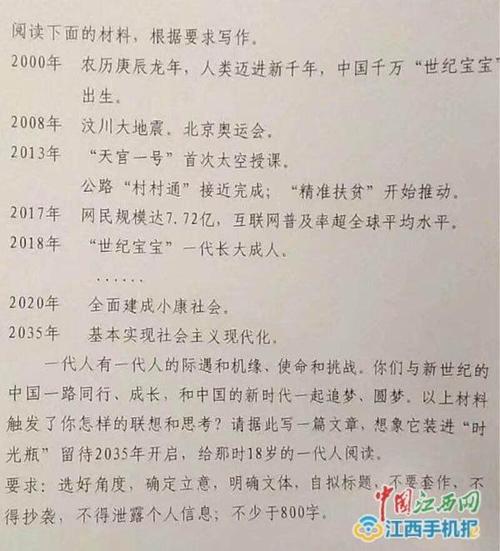 阅读下面的材料，根据要求写作。
2000年 农历庚辰龙年，人类迈进新千年，中国千万“世纪宝宝”
出生。
2008年 汶川大地震。北京奥运会。
2013年 “天宫一号”首次太空授课。
公路“村村通”接近完成；“精准扶贫”开始推动。
2017年 网民规模达7.72亿，互联网普及率超全球平均水平。
2018年 “世纪宝宝”一代长大成人。
......
2020年 全面建成小康社会。
2035年 基本实现社会主义现代化。
一代人有一代人的际遇和机缘、使命和挑战。你们与新世纪的
中国一路同行、成长，和中国的新时代一起追梦、圆梦。以上材料
触发了你怎样的联想和思考？请据此写一篇文章，想象它装进“时
光瓶”留待2035年开启，给那时18岁的一代人阅读。
要求：选好角度，确定立意，明确文体，自拟标题，不要套作，不
得抄袭，不得泄露个人信息；不少于800字。
中国江西网
江西手机报